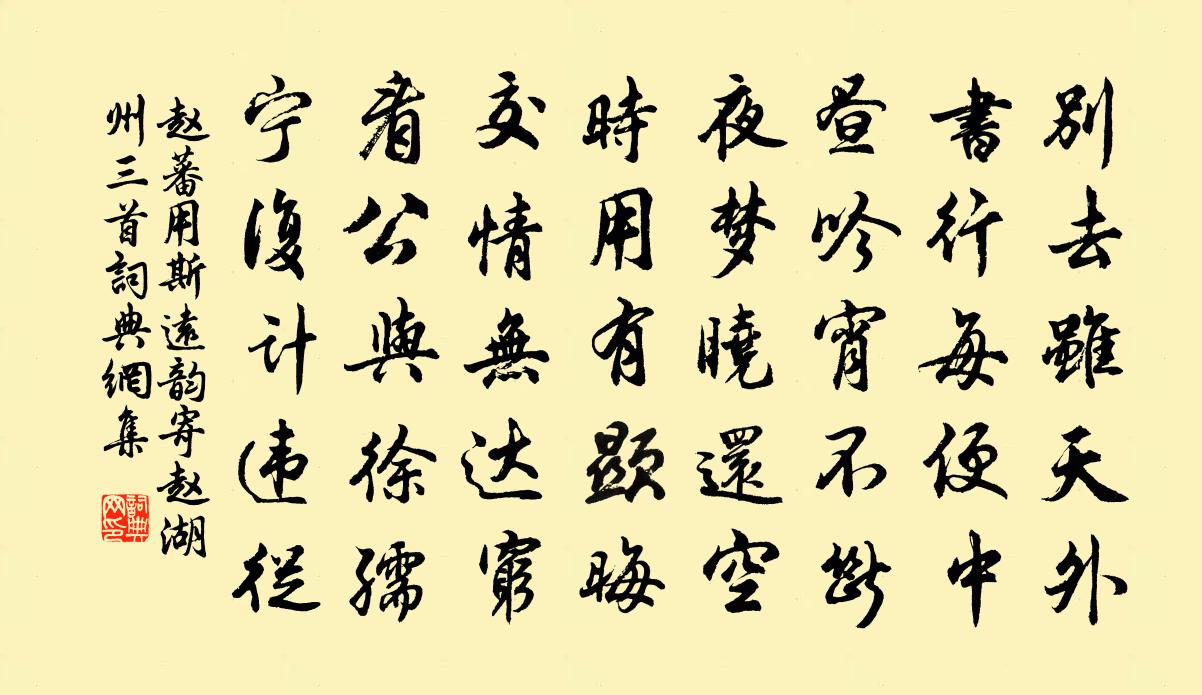 別去雖天外
書行每便中
昼吟宵不斷
夜梦曉還空
時用有顯晦
交情無达窮
看公與徐孺
宁復计违從
赵蕃用斯遠韵寄赵湖
州三首詞典網集
詞典
网印